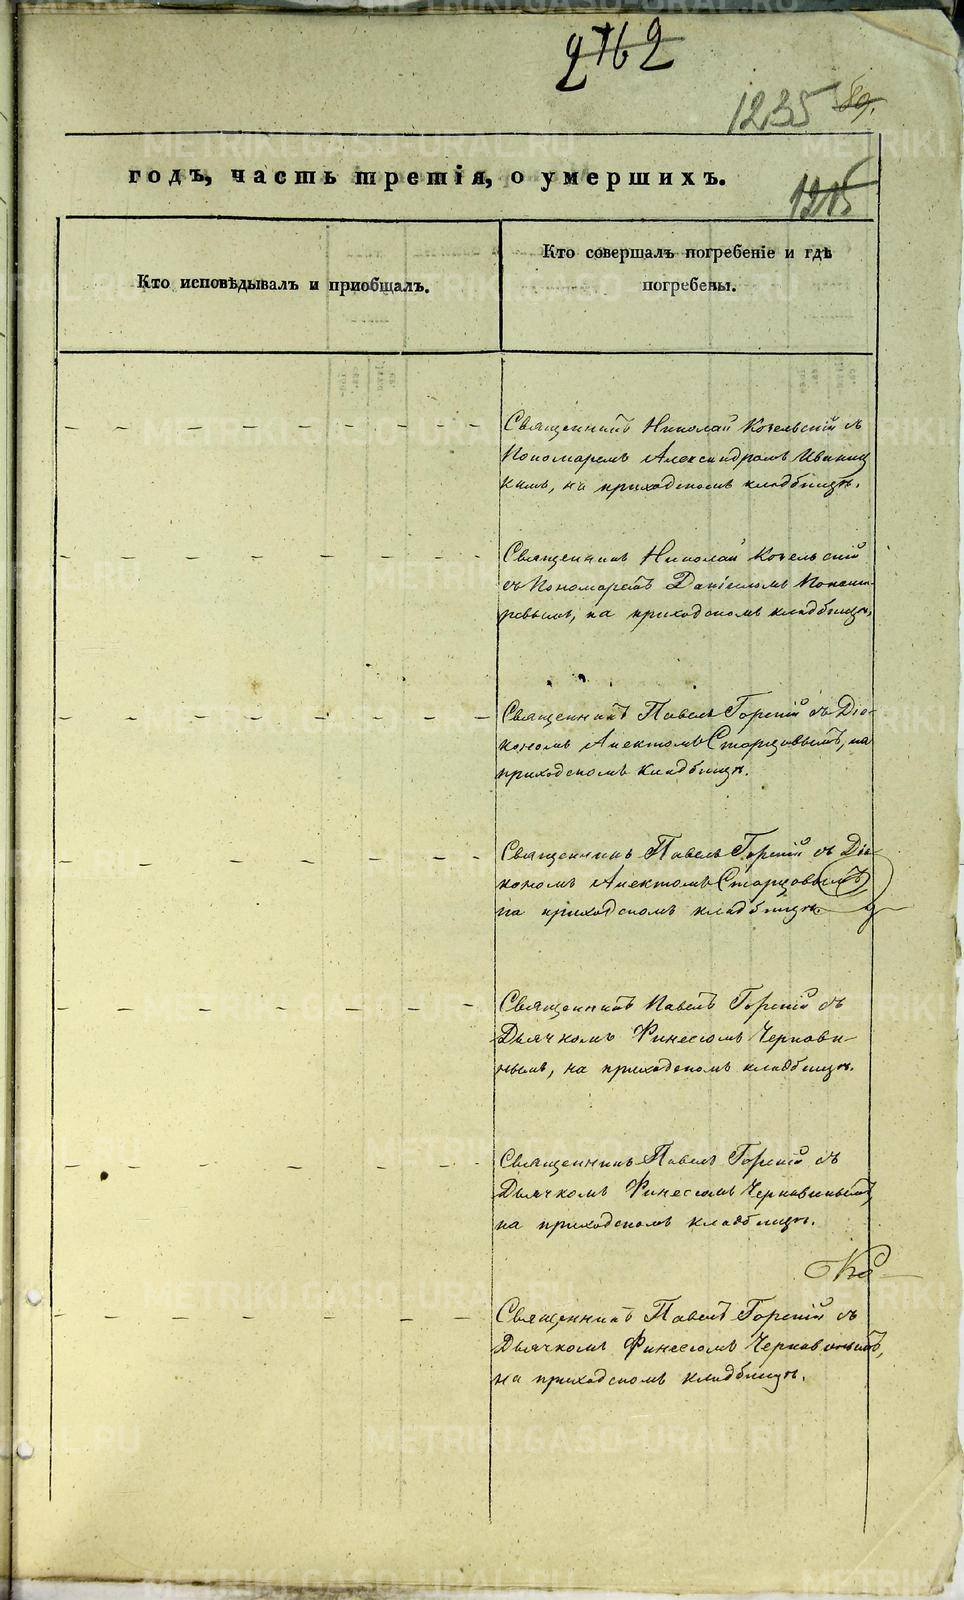 1235 89.
годъ, часть третія, о умершихъ.
1215
Кто исповѣдывалъ и пріобщалъ.
Кто совершалъ погребеніе и гдѣ
погребены.
Священникъ Николай Козельскій съ
Пономаремъ Александромъ Ивани
кимъ, на приходскомъ кладбищѣ.
Священникъ Николай Козельскій
съ Пономаремъ Даніиломъ
на приходскомъ кладбищѣ,
Священникъ Павелъ Горскій съ Діа-
кономъ Анектомъ Старцовымъ, на
приходскомъ кладбищѣ.
Священникъ Павелъ Горскій съ Діа-
кономъ Анектомъ Старцовымъ
на приходскомъ кладбищѣ.
Священникъ Павелъ Горскій съ
Дьячкомъ Финесомъ Чернави-
нымъ, на приходскомъ кладбищѣ.
Священникъ Павелъ Горскій съ
Дьячкомъ Финесомъ Чернавинымъ,
на приходскомъ кладбищѣ.
Священникъ Павелъ Горскій съ
Дьячкомъ Финесомъ Чернавинымъ,
на приходскомъ кладбищѣ.
METRIKI.GASO-URAL.RU